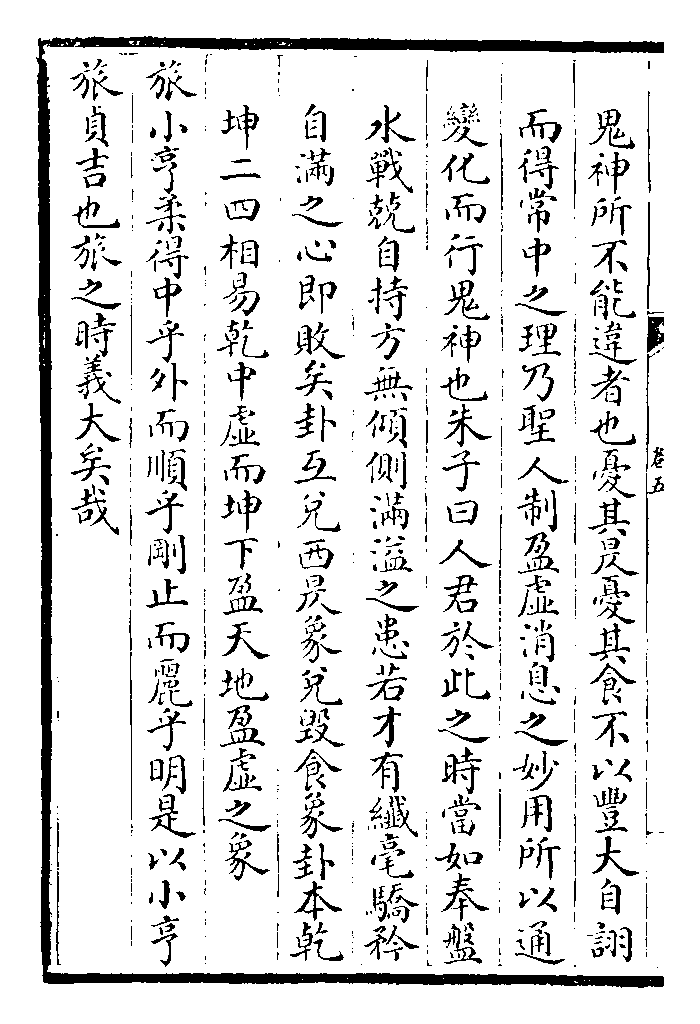 卷五
鬼神所不能違者也憂其昃憂其食不以豐大自詡
而得常中之理乃聖人制盈虛消息之妙用所以通
變化而行鬼神也朱子曰人君於此之時當如奉盤
水戰兢自持方無傾側滿溢之患若才有纖毫驕矜
自滿之心即敗矣卦互兌西昃象兌毀食象卦本乾
坤二四相易乾中虛而坤下盈天地盈虛之象
旅小亨柔得中乎外而順乎剛止而麗乎明是以小亨
旅貞吉也旅之時義大矣哉